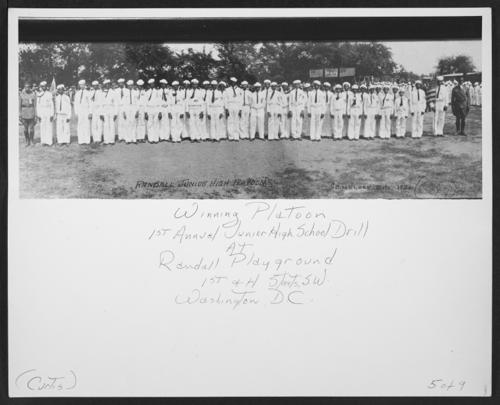 Randall Junior High Platoon
Winning Platoon
1st Annual Junior High School Drill
At
Randall Playground
1st & H Streets, S.W.
Washington DC.
(Curtis)
5 of 9